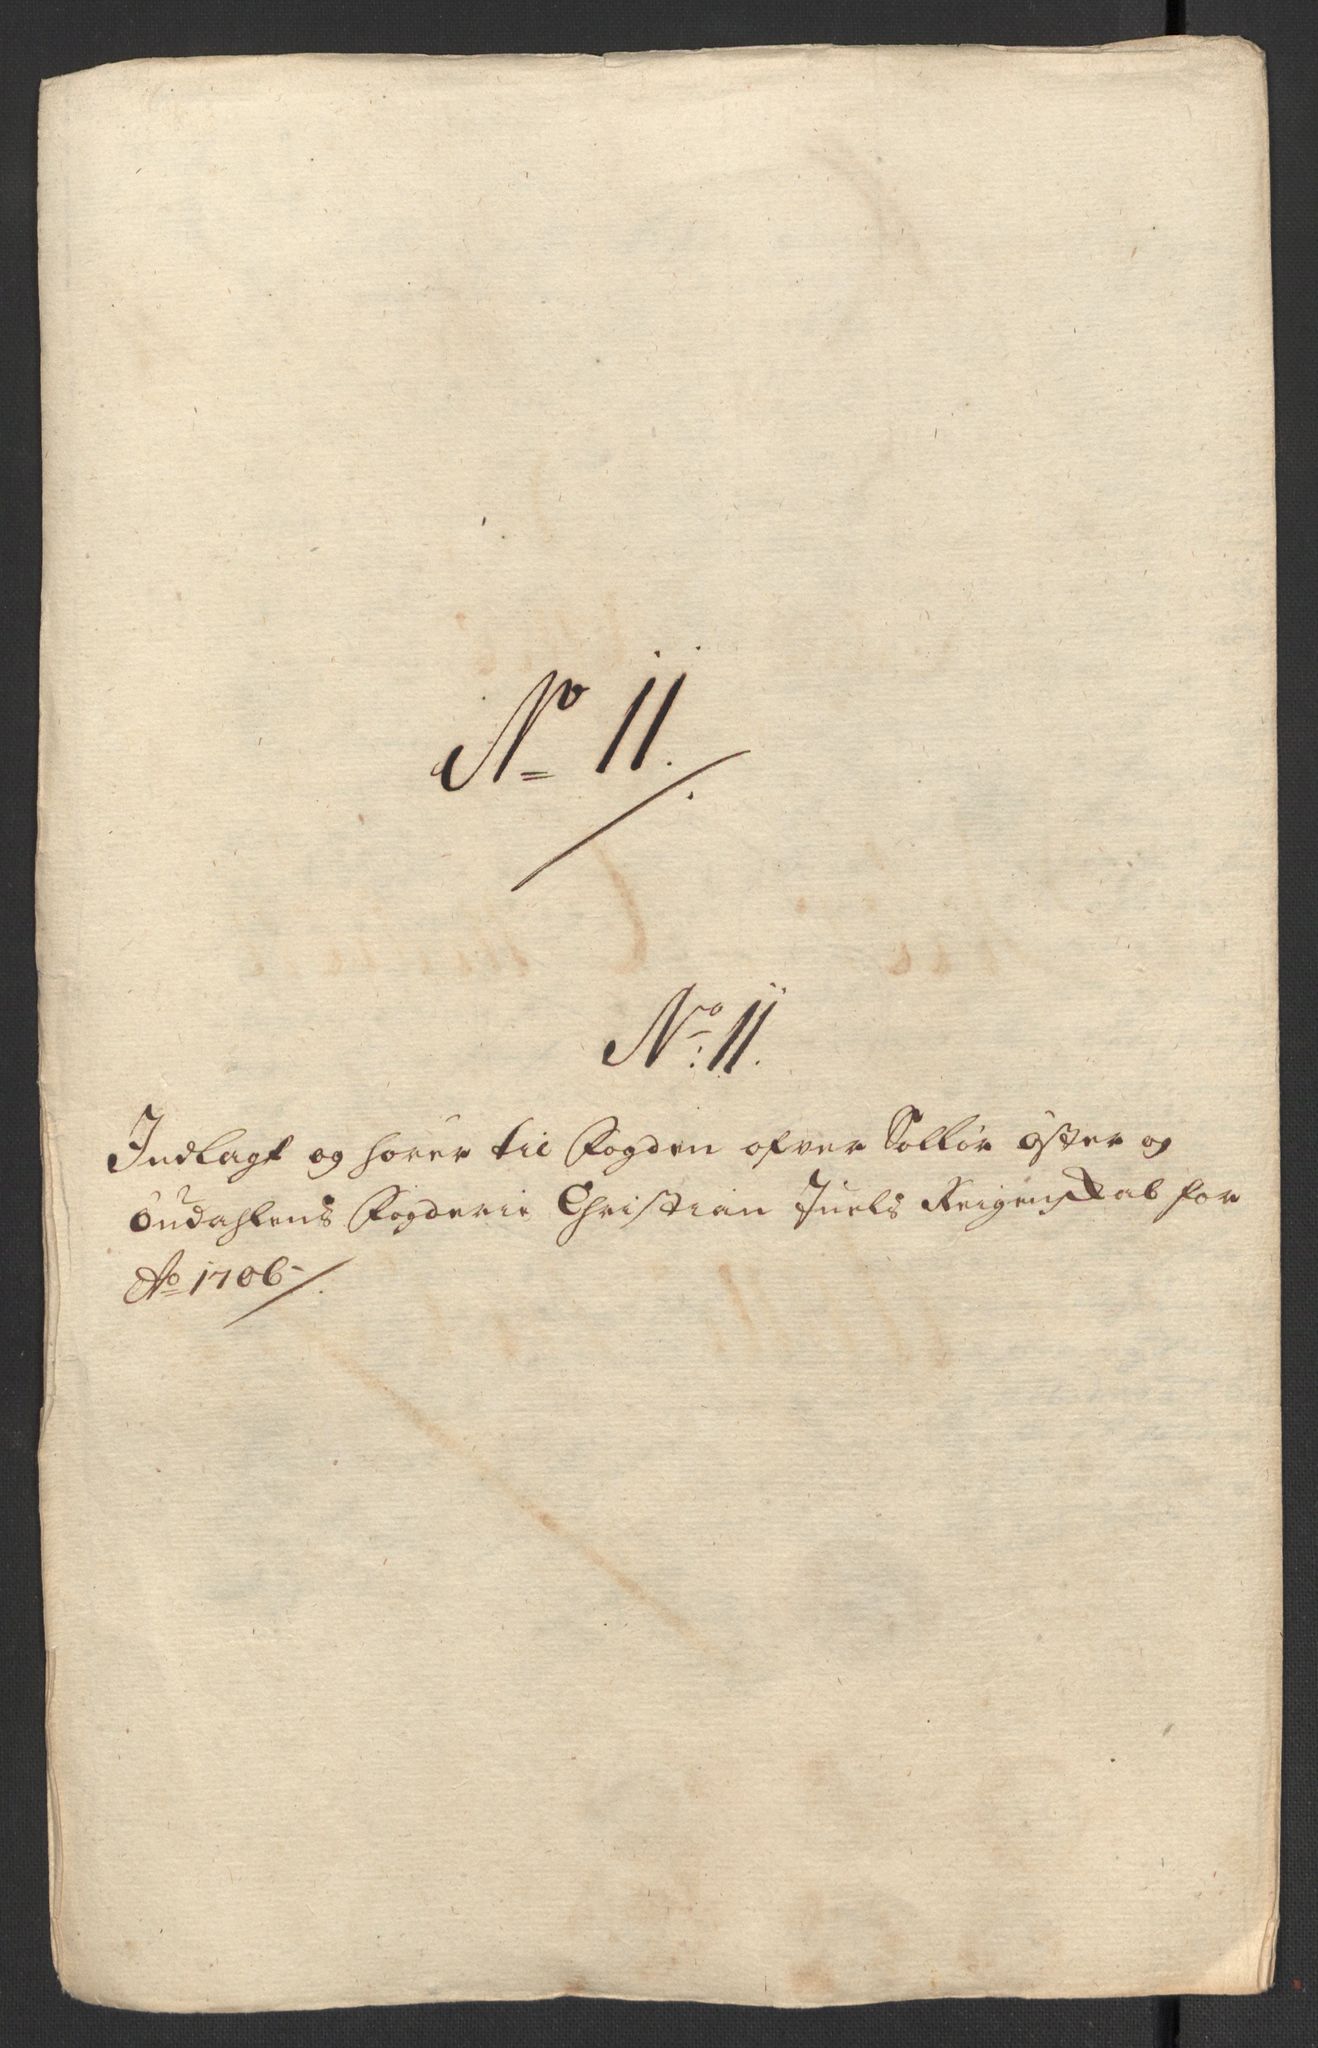 No 11.
No: 11.
Indlagt og hører til Fogden ofver Sollør øster og
Oudahlens Fogderie Christian Juels Reigenskab for
Ao 1706